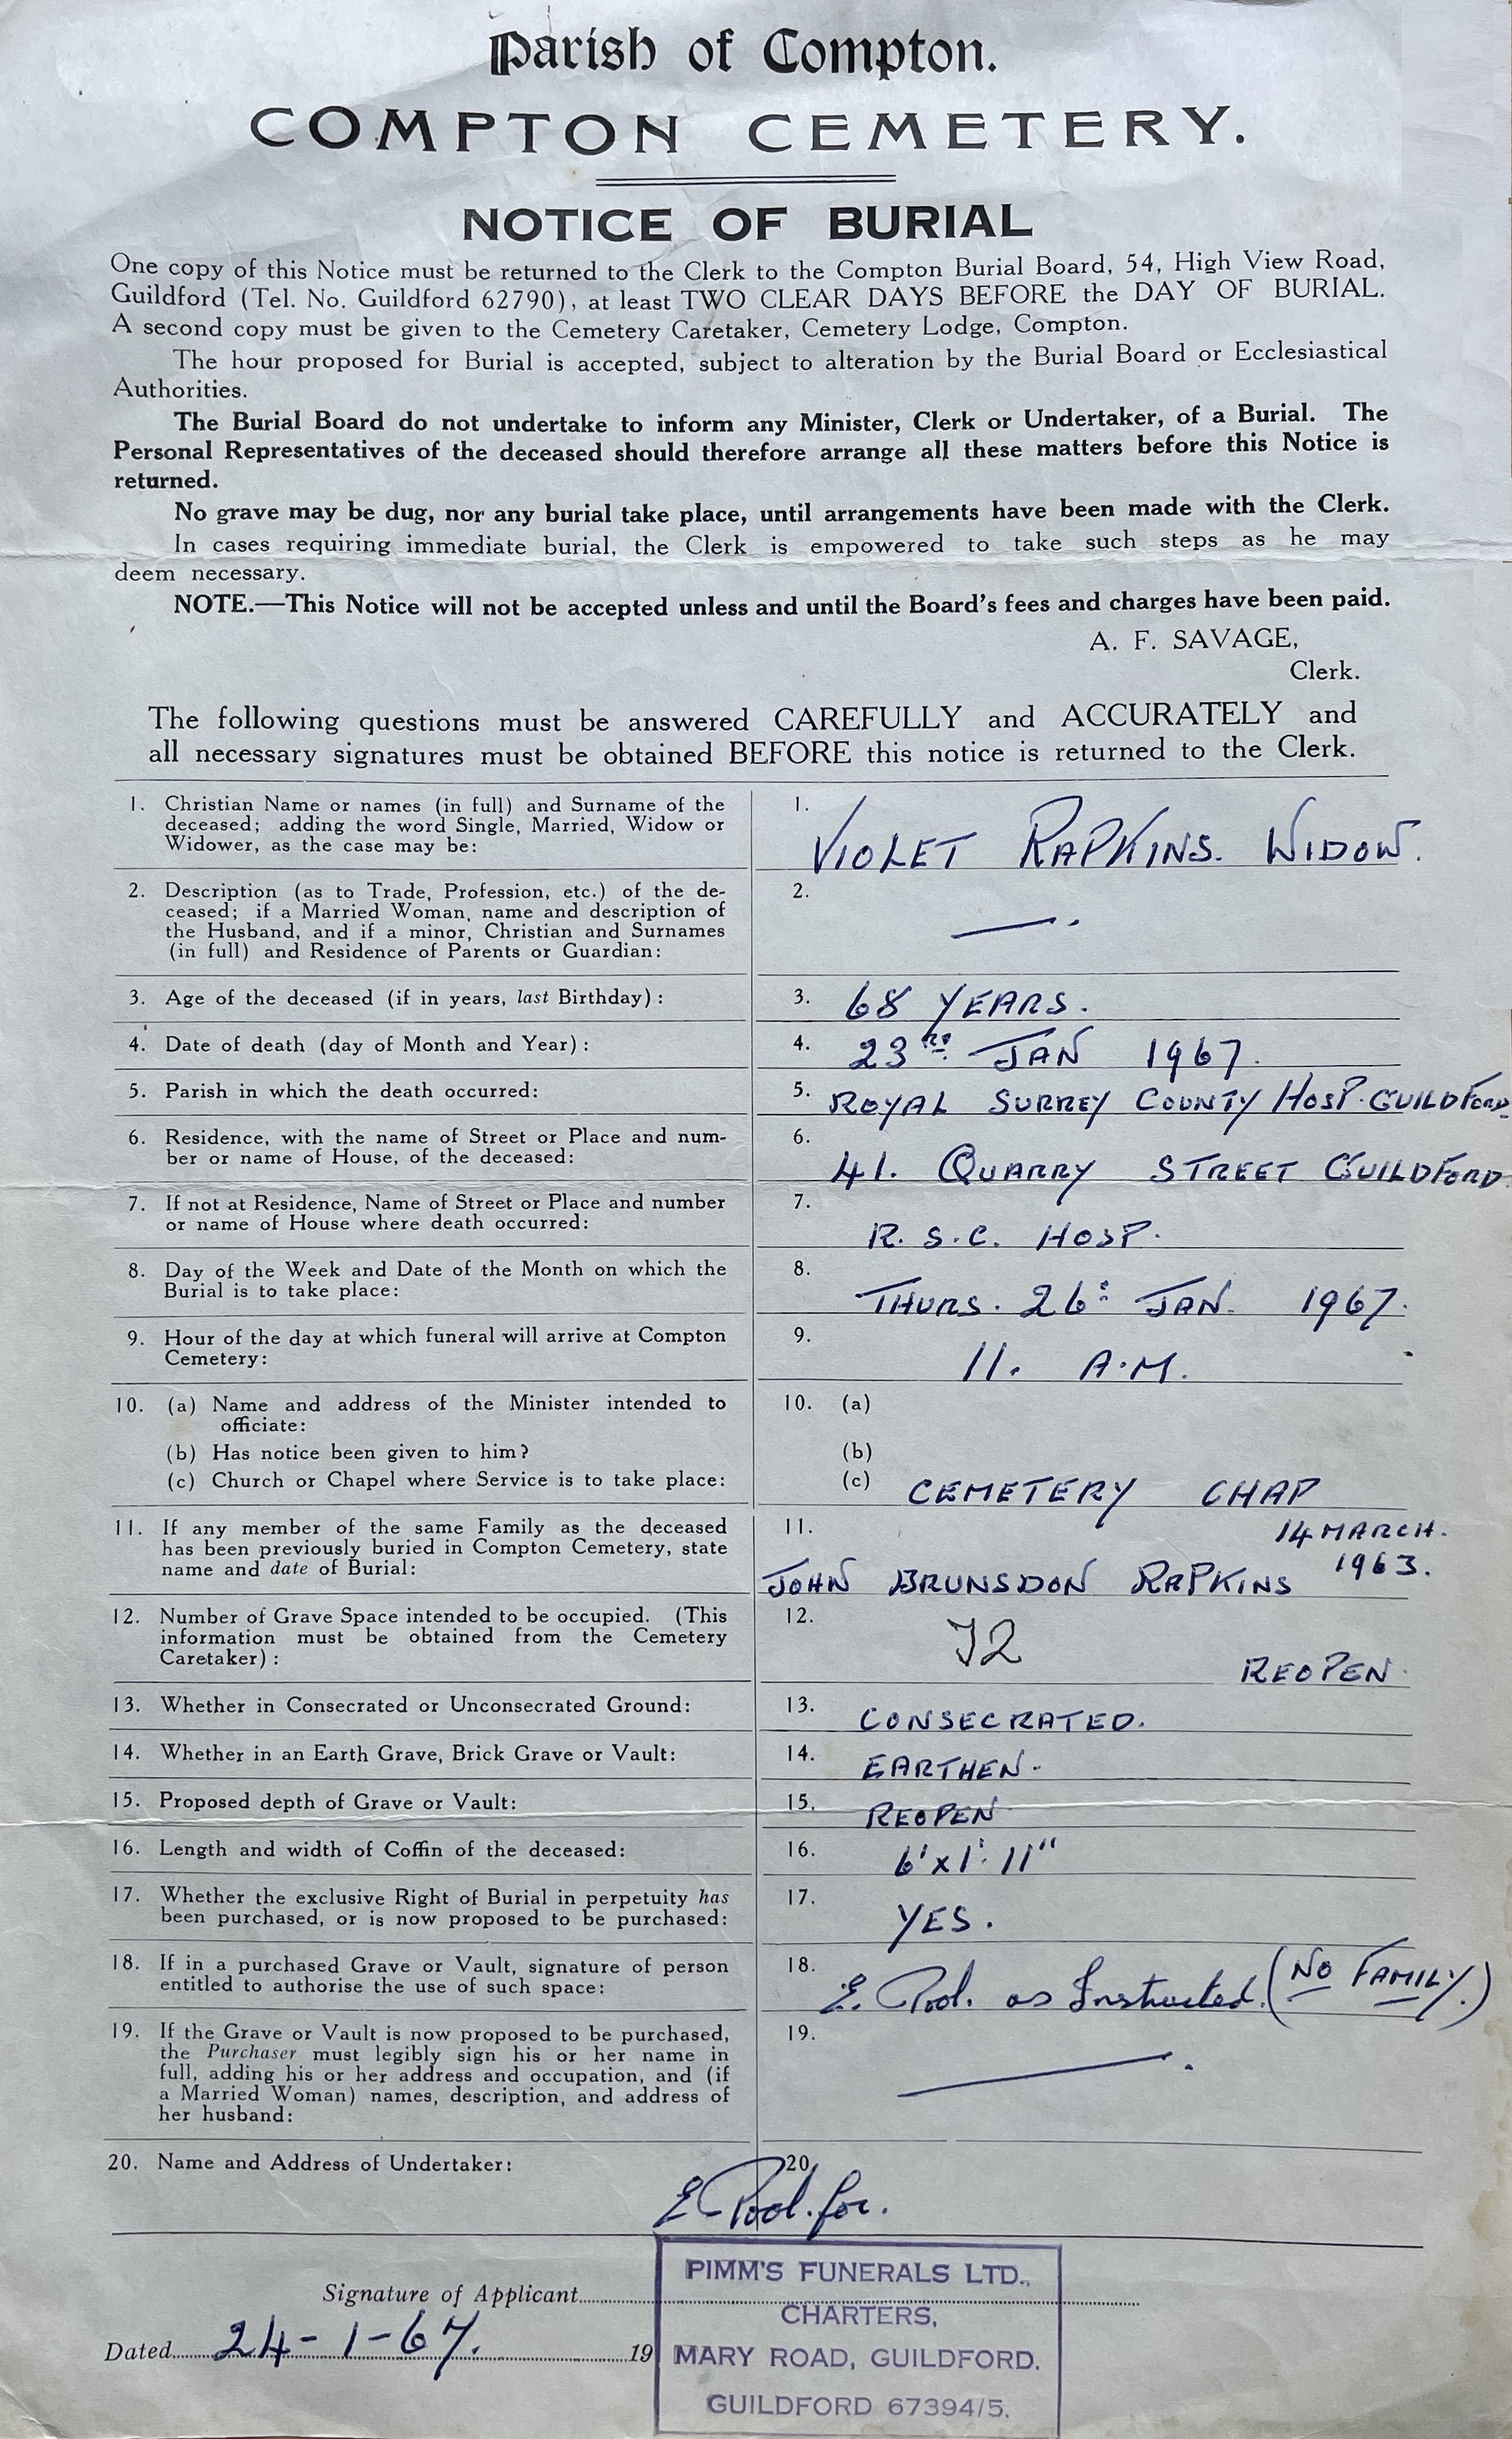 Parish of Compton.
COMPTON CEMETERY.
NOTICE OF BURIAL
One copy of this Notice must be returned to the Clerk to the Compton Burial Board, 54, High View Road,
Guildford (Tel. No. Guildford 62790), at least TWO CLEAR DAYS BEFORE the DAY OF BURIAL.
A second copy must be given to the Cemetery Caretaker, Cemetery Lodge, Compton.
The hour proposed for Burial is accepted, subject to alteration by the Burial Board or Ecclesiastical
Authorities.
The Burial Board do not undertake to inform any Minister, Clerk or Undertaker, of a Burial. The
Personal Representatives of the deceased should therefore arrange all these matters before this Notice is
returned.
No grave may be dug, nor any burial take place, until arrangements have been made with the Clerk.
In cases requiring immediate burial, the Clerk is empowered to take such steps as he may
deem necessary.
NOTE.—This Notice will not be accepted unless and until the Board's fees and charges have been paid.
A. F. SAVAGE,
Clerk.
The following questions must be answered CAREFULLY and ACCURATELY and
all necessary signatures must be obtained BEFORE this notice is returned to the Clerk.
1. Christian Name or names (in full) and Surname of the
deceased; adding the word Single, Married, Widow or
Widower, as the case may be:
1.
VIOLET RAPKINS. WIDOW.
2. Description (as to Trade, Profession, etc.) of the de-
ceased; if a Married Woman, name and description of
the Husband, and if a minor, Christian and Surnames
(in full) and Residence of Parents or Guardian:
2.
—.
3. Age of the deceased (if in years, last Birthday):
3. 68 YEARS.
4. Date of death (day of Month and Year):
4. 23RD JAN 1967.
5. Parish in which the death occurred:
5. ROYAL SURREY COUNTY HOSP. GUILDFORD.
6. Residence, with the name of Street or Place and num-
ber or name of House, of the deceased:
6.
41. QUARRY STREET GUILDFORD
7. If not at Residence, Name of Street or Place and number
or name of House where death occurred:
7.
R.S.C. HOSP.
8. Day of the Week and Date of the Month on which the
Burial is to take place:
8.
THURS. 26: JAN. 1967.
9. Hour of the day at which funeral will arrive at Compton
Cemetery:
9.
11. A.M.
10. (a) Name and address of the Minister intended to
officiate:
(b) Has notice been given to him?
(c) Church or Chapel where Service is to take place:
10. (a)
(b)
(c) CEMETERY CHAP
11. If any member of the same Family as the deceased
has been previously buried in Compton Cemetery, state
name and date of Burial:
11.
14 MARCH.
1963.
JOHN BRUNSDON RAPKINS
12. Number of Grave Space intended to be occupied. (This
information must be obtained from the Cemetery
Caretaker):
12.
J2
REOPEN.
13. Whether in Consecrated or Unconsecrated Ground:
13. CONSECRATED.
14. Whether in an Earth Grave, Brick Grave or Vault:
14. EARTHEN.
15. Proposed depth of Grave or Vault:
15. REOPEN
16. Length and width of Coffin of the deceased:
16. 6' x 1' 11"
17. Whether the exclusive Right of Burial in perpetuity has
been purchased, or is now proposed to be purchased:
17.
YES.
18. If in a purchased Grave or Vault, signature of person
entitled to authorise the use of such space:
18.
E. Pool. as Instructed. (NO FAMILY.)
19. If the Grave or Vault is now proposed to be purchased,
the Purchaser must legibly sign his or her name in
full, adding his or her address and occupation, and (if
a Married Woman) names, description, and address of
her husband:
19.
—.
20. Name and Address of Undertaker:
20.
E Pool. for.
Signature of Applicant
Dated 24-1-67. 19
PIMM'S FUNERALS LTD.,
CHARTERS,
MARY ROAD, GUILDFORD.
GUILDFORD 67394/5.